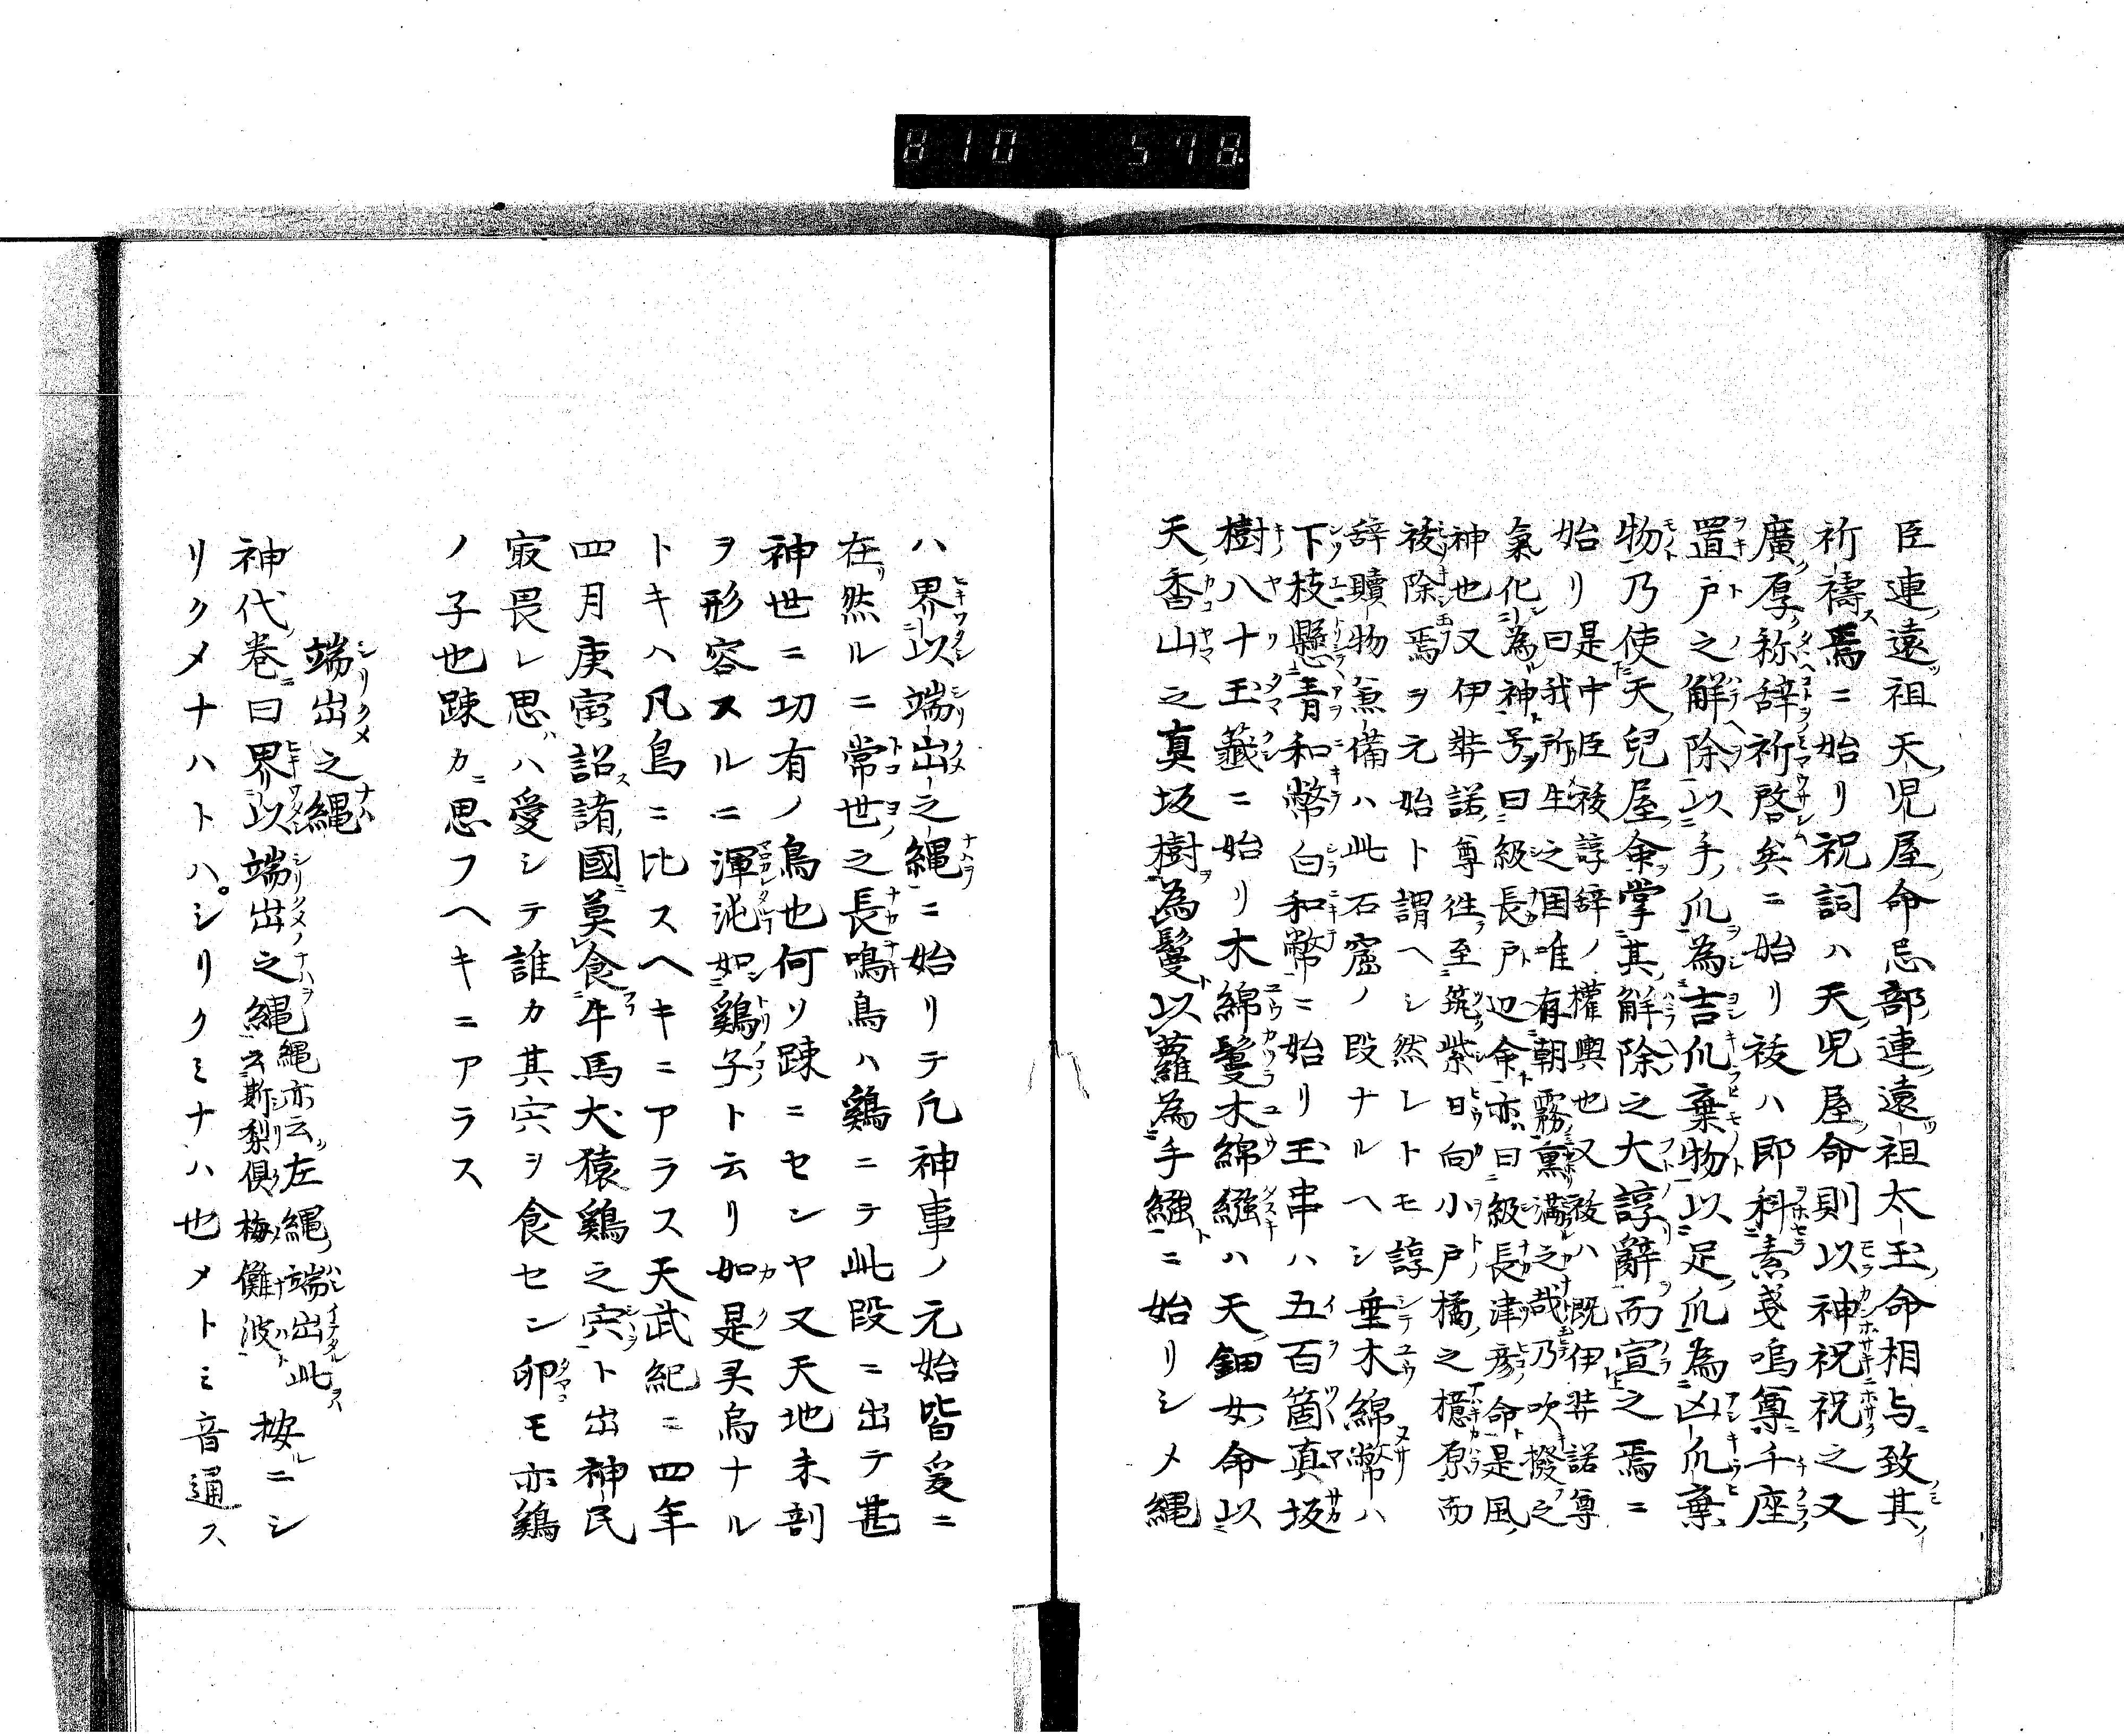 810 578
臣連遠祖天児屋命忌部連遠祖太玉命相与致其
祈祷焉ニ始リ祝詞ハ天児屋命則以神祝祝之又
廣厚称辞祈啓矣ニ始リ祓ハ即科素戔嗚尊千座
置戸之解除以手爪為吉爪棄物以足爪為凶爪棄
物乃使天兒屋命掌其解除之大諄辭而宣之焉ニ
始リ是中臣祓諄辞ノ權輿也又祓ハ既伊弉諾尊
曰我所生之国唯有朝霧薫満之哉乃吹撥之
氣化為神号曰級長戸辺命亦曰級長津彦命是風
神也又伊弉諾尊徃至筑紫日向小戸橘之檍原而
祓除焉ヲ元始ト謂ヘシ然レトモ諄
辞贖物兼備ハ此石窟ノ段ナルヘシ垂木綿幣ハ
下枝懸青和幣白和幣ニ始リ玉串ハ五百箇真坂
樹八十玉籤ニ始リ木綿鬘木綿繦ハ天鈿女命以
天香山之真坂樹為鬘以蘿為手繦ニ始リシメ縄
ハ界以端出之縄ニ始リテ凢神事ノ元始皆爰ニ
在然ルニ常世之長鳴鳥ハ鷄ニテ此段ニ出テ甚
神世ニ功有ノ鳥也何ソ踈ニセンヤ又天地未剖
ヲ形容スルニ渾沌如鷄子ト云リ如是灵鳥ナル
トキハ凡鳥ニ比スヘキニアラス天武紀ニ四年
四月庚寅詔諸國莫食牛馬犬猿鷄之宍ト出神民
寂畏レ思ハ愛シテ誰カ其宍ヲ食セン卵モ亦鷄
ノ子也踈カニ思フヘキニアラス
端出之縄
神代巻曰界以端出之縄縄亦云左縄端出此云斯梨倶梅儺波按ニシ
リクメナハトハシリクミナハ也メトミ音通ス